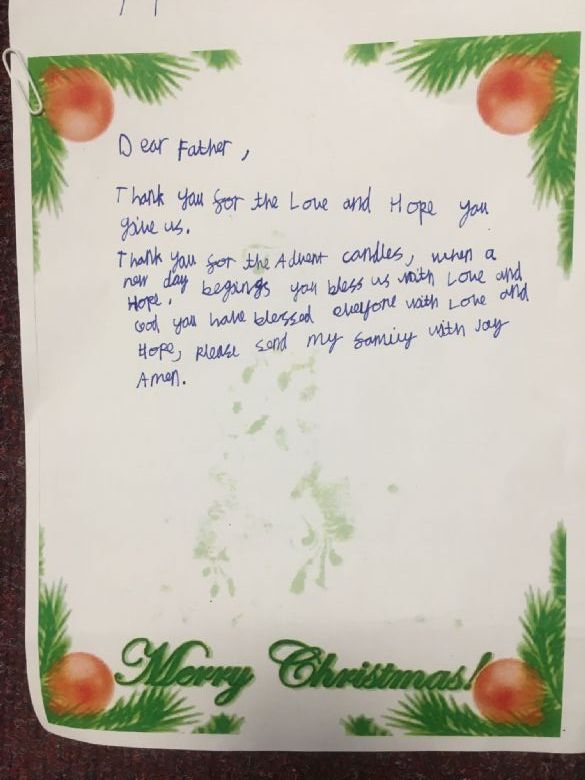 Dear Father,
Thank you for the Love and Hope you
give us.
Thank you for the Advent candles, when a
new day begings you bless us with Love and
Hope.
God you have blessed eveyone with Love and
Hope, please send my family with Joy
Amen.
Merry Christmas!